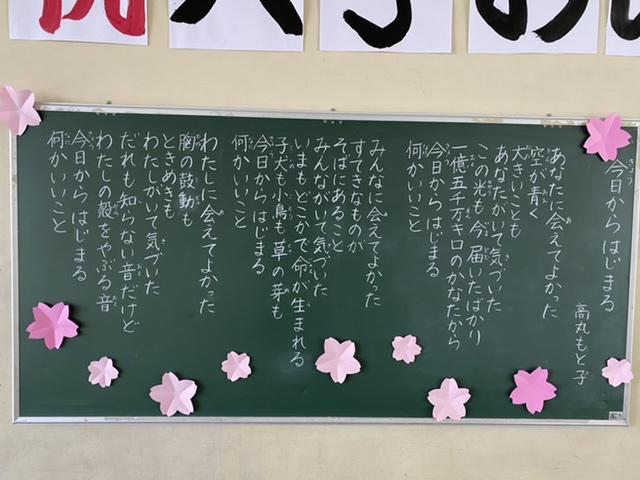 祝入学おめ
今日からはじまる
高丸もと子
あなたに会えてよかった
空が青く
大きいことも
あなたがいて気づいた
この光も今届いたばかり
一億五千万キロのかなたから
今日からはじまる
何かいいこと
みんなに会えてよかった
すてきなものが
そばにあること
みんながいて気づいた
いまもどこかで命が生まれる
子犬も小鳥も草の芽も
今日からはじまる
何かいいこと
わたしに会えてよかった
胸の鼓動も
ときめきも
わたしがいて気づいた
だれも知らない音だけど
わたしの殻をやぶる音
今日からはじまる
何かいいこと